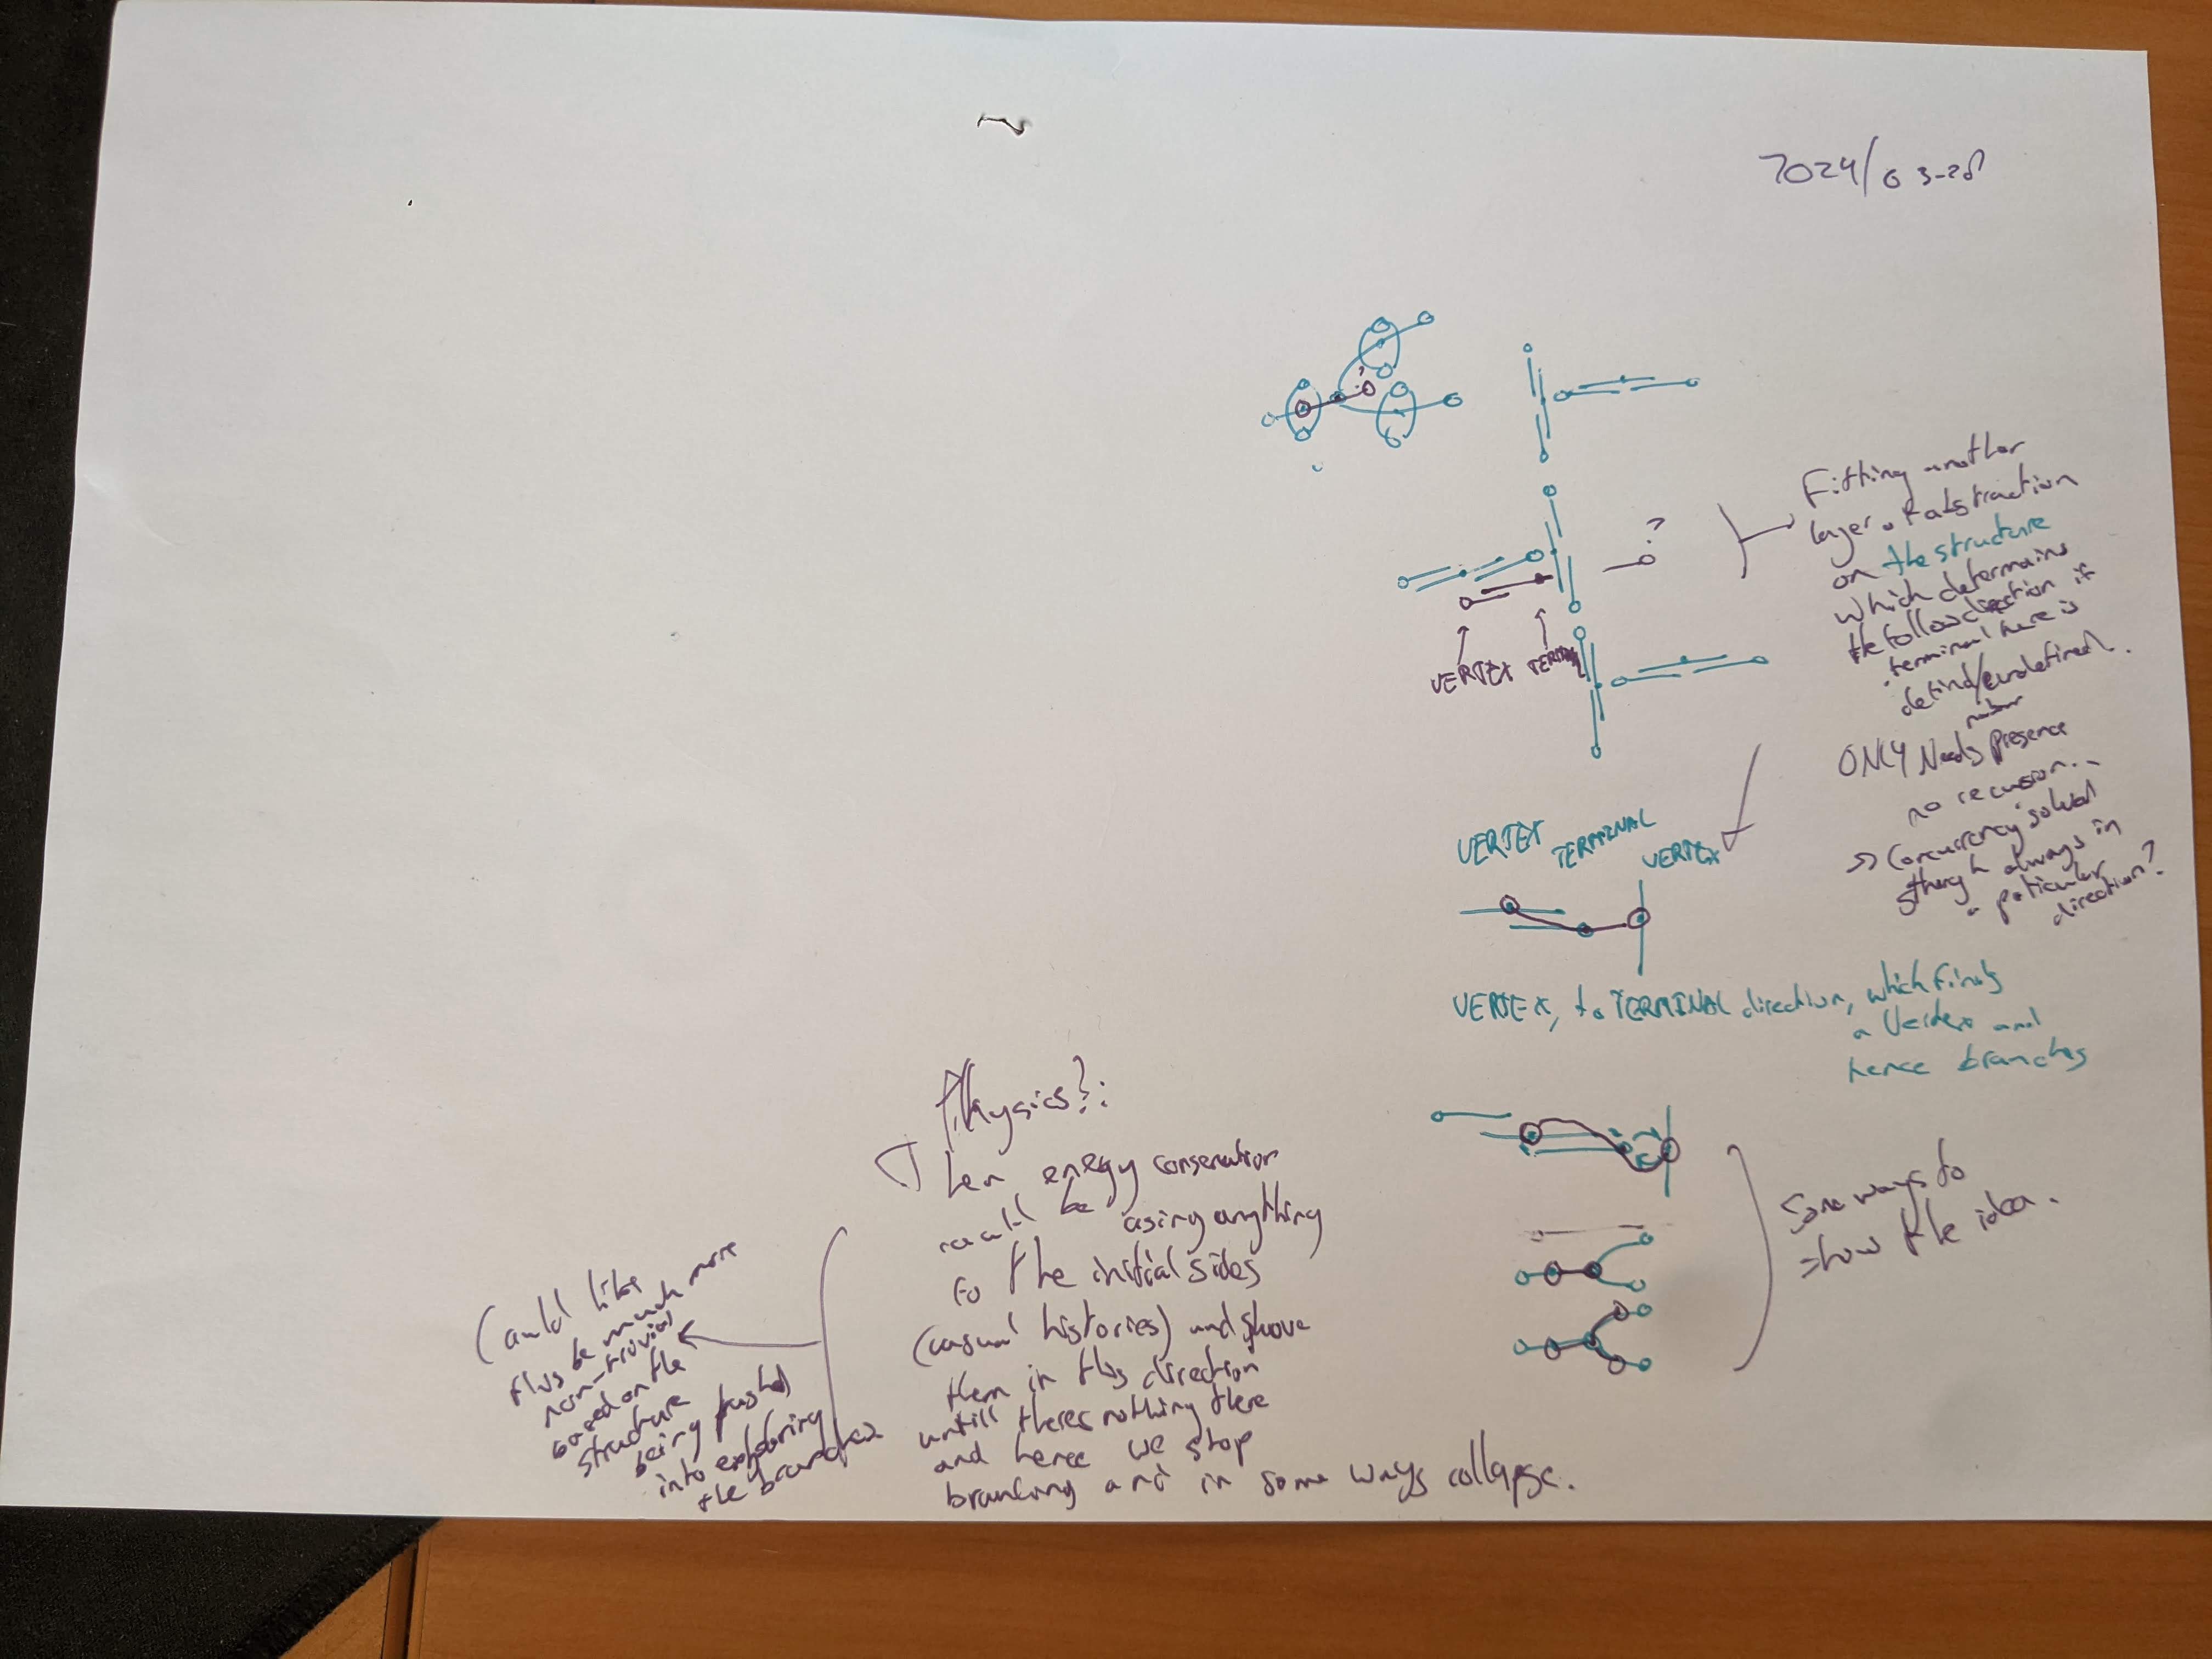 2024/03-28
?
Fitting another
layer of abstraction
on the structure
which determains
the follow direction if
terminal here is
defind/undefined.
?
VERTEX
ONLY Needs presence
no recursion...
=> Concurrency solved
though always in
a paticular
direction?
VERTEX TERMINAL VERTEX
VERTEX, to TERMINAL direction, which finds
a Vertex and
hence branches
Some ways to
show the idea.
Physics?:
energy conservation
would be using anything
to the initial sides
(casual histories) and shove
them in this direction
untill theres nothing there
and hence we stop
branching and in some ways collapse.
Could like
this be much more
non-trivial
based on the
structure
being pushed
into exploring
the branches